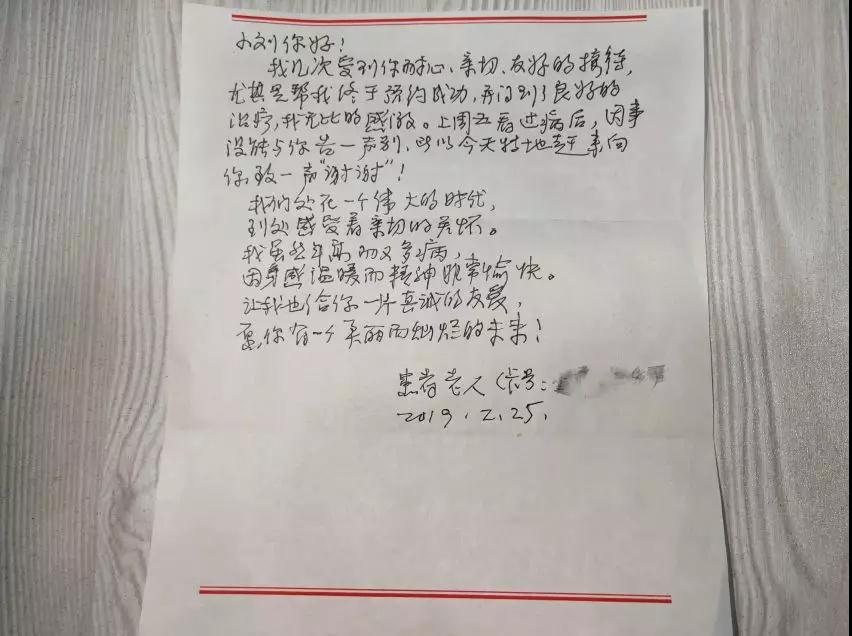 小刘你好！
我几次受到你耐心、亲切、友好的接待，
尤其是帮我终于预约成功，再得到了良好的
治疗，我无比的感激。上周五看过病后，因事
没能与你告一声别，所以今天特地赶来向
你致一声“谢谢”！
我们处在一个伟大的时代，
到处感受着亲切的关怀。
我虽然年高而又多病，
因身感温暖而精神非常愉快。
让我也给你一片真诚的友爱，
愿你有一个美丽而灿烂的未来！
患者老人（卡号：
2019.2.25.